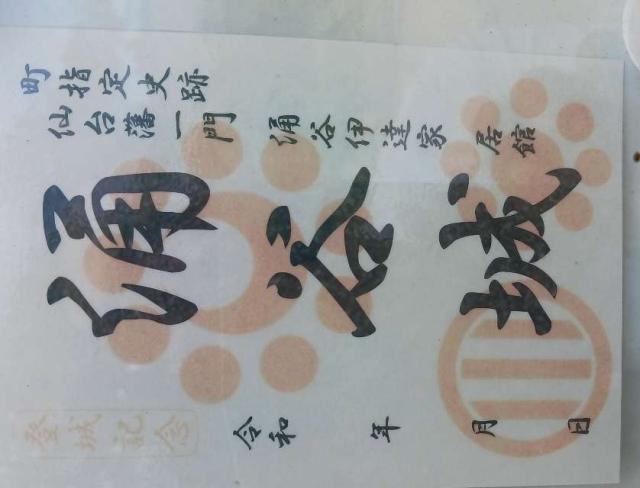 町指定史跡
仙台藩一門 涌谷伊達家 居館
涌谷城
令和 年 月 日
登城記念